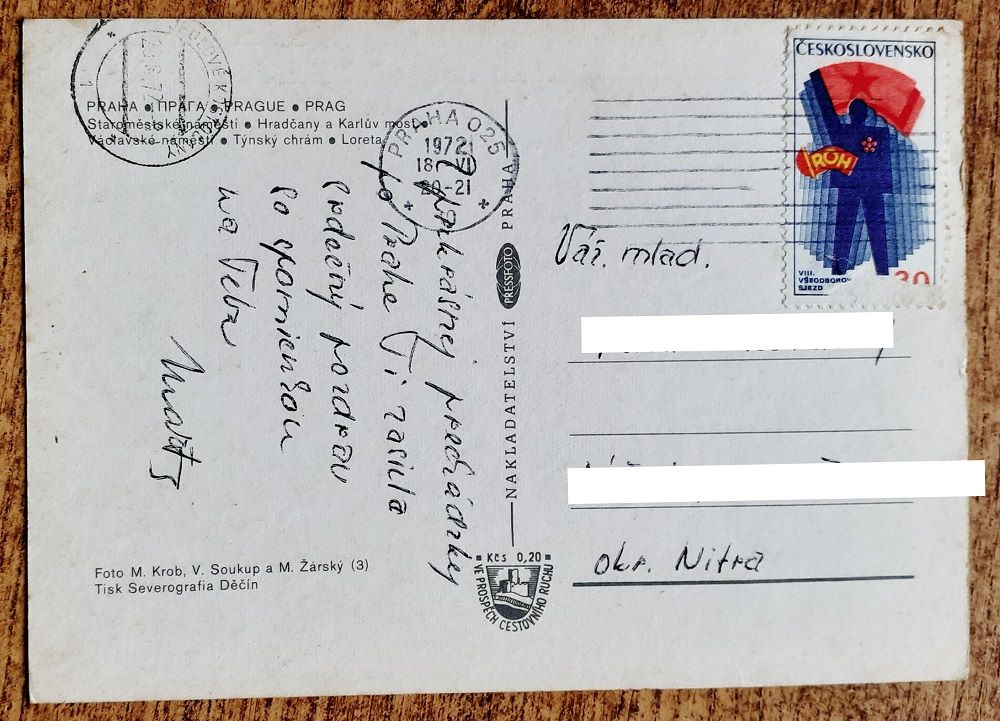 PRAHA • ПРАГА • PRAGUE • PRAG
Staroměstské náměstí • Hradčany a Karlův most •
Václavské náměstí • Týnský chrám • Loreta
PRAHA 025
1972
18 VI
20-21
Z prekrásnej prechádzky
po Prahe Ti zasiela
srdečný pozdrav
so spomienkou
na Teba
Foto M. Krob, V. Soukup a M. Žárský (3)
Tisk Severografia Děčín
NAKLADATELSTVÍ PRESSFOTO PRAHA
Kčs 0,20
VE PROSPĚCH CESTOVNÍHO RUCHU
ČESKOSLOVENSKO
ROH
VIII.
VŠEODBOROV
SJEZD
30
Váž. mlad.
okr. Nitra